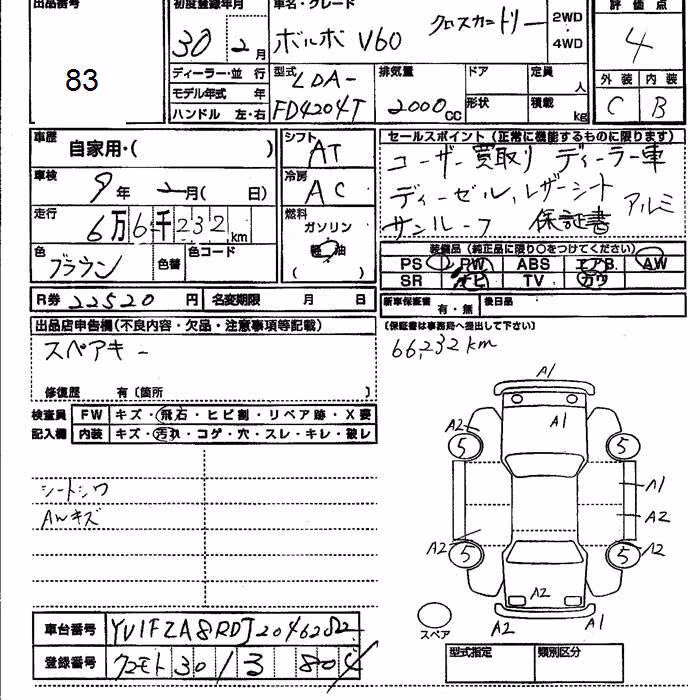 出品番号 初度登録年月 車名・グレード 評価点
83 30年2月 ボルボ V60 クロスカントリー 2WD 4WD 4
ディーラー・並行 型式 排気量 ドア 定員 外装 内装
モデル年式 年 LDA- 人
ハンドル 左・右 FD4204T 2000cc 形状 積載 kg C B
車歴 自家用・( ) シフト AT セールスポイント(正常に機能するものに限ります)
車検 9年 2月( 日) 冷房 AC ユーザー買取り ディーラー車
走行 6万6千232km 燃料 ガソリン 軽油 ( ) ディーゼル、レザーシート
サンルーフ 保証書 アルミ
色 ブラウン 色替 色コード 装備品(純正品に限り○をつけてください)
PS PW ABS エアB AW
SR ナビ TV カワ
R券 22520円 名変期限 月 日 新車保証書 有・無 後日品
出品店申告欄(不良内容・欠品・注意事項等記載) (保証書は事務局へ提出して下さい)
スペアキー 66,232km
修復歴 有〔箇所 〕
検査員 FW キズ・飛石・ヒビ割・リペア跡・X要
記入欄 内装 キズ・汚れ・コゲ・穴・スレ・キレ・破レ
シートシワ
AWキズ
A1
A2 A1
5 5
A1
A2
A2 5 5 A2
A2
スペア A2 A1
車台番号 YV1FZA8RDJ2046282
登録番号 クマモト 30 / 3 80 型式指定 類別区分